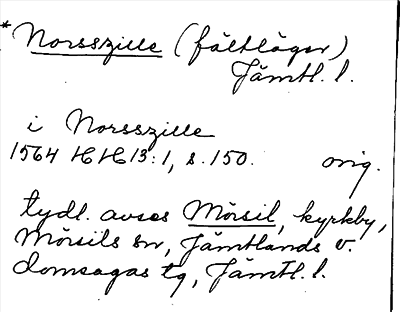 * Norsszille (fältläger)
Jämtl. l.
i Norsszille
1564 HH 13:1, s. 150. orig.
tydl. avses Mörsil, kyrkby,
Mörsils sn, Jämtlands v.
domsagas tg, Jämtl. l.